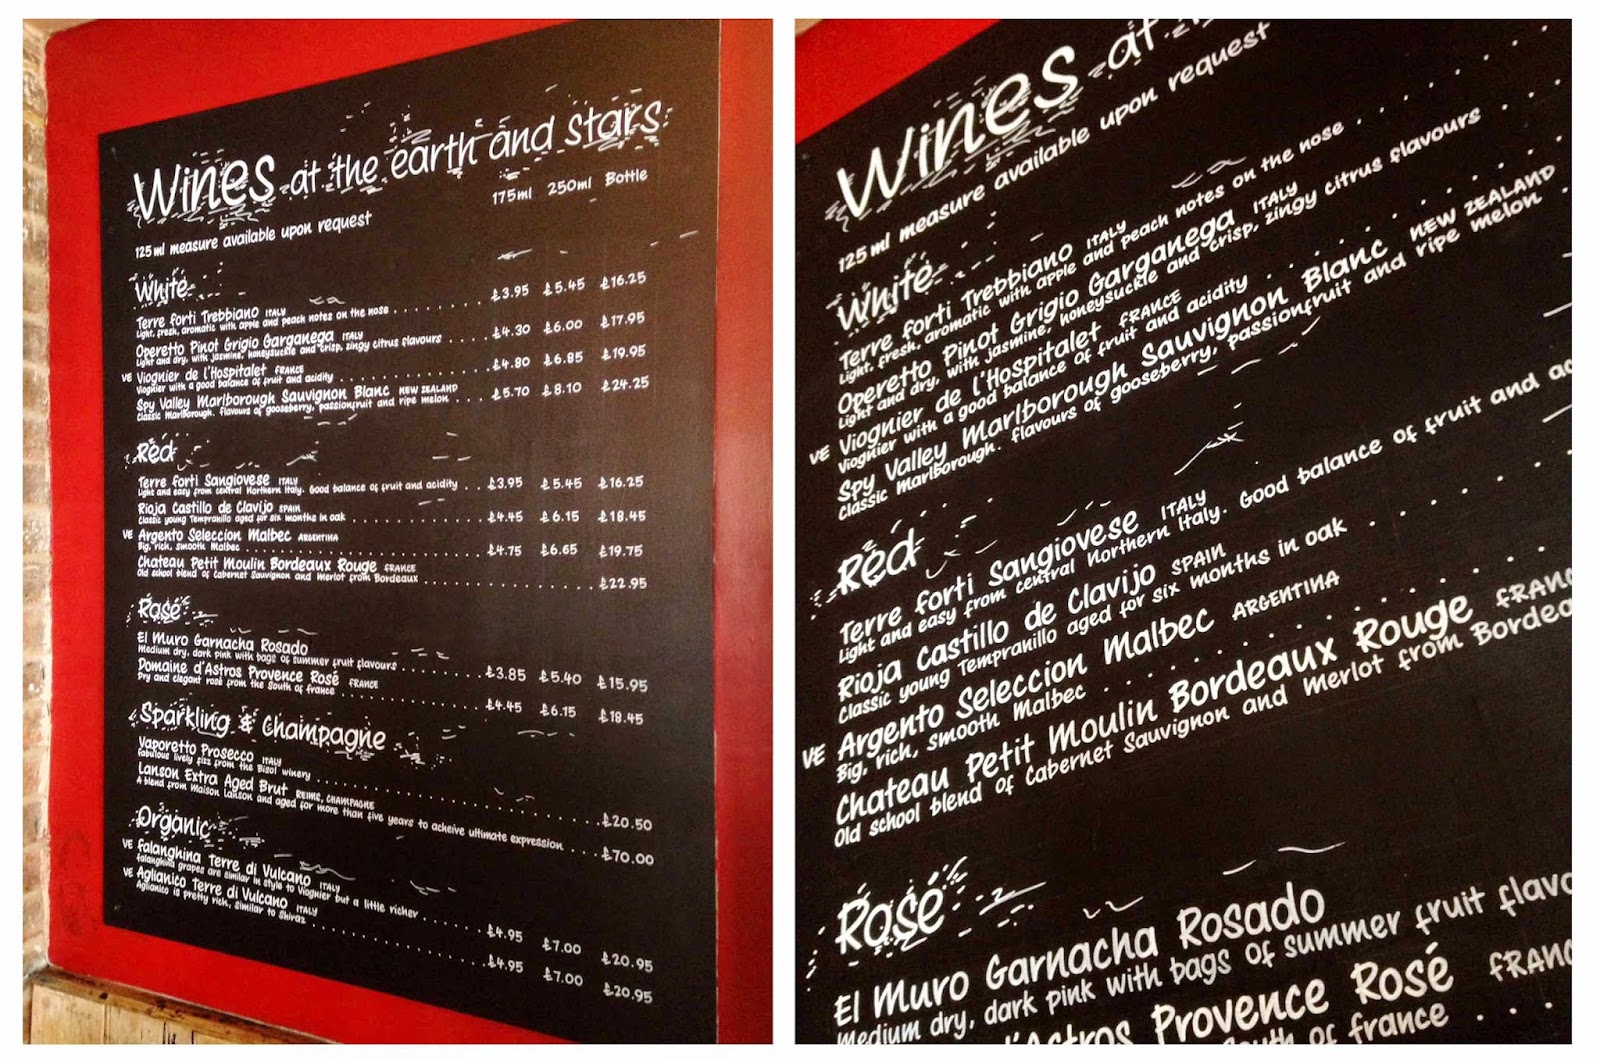 Wines at the earth and stars
175ml 250ml Bottle
125ml measure available upon request
White
Terre forti Trebbiano ITALY
Light, fresh, aromatic with apple and peach notes on the nose . . . . . . . . £3.95 £5.45 £16.25
Operetto Pinot Grigio Garganega ITALY
Light and dry, with jasmine, honeysuckle and crisp, zingy citrus flavours . . . . £4.30 £6.00 £17.95
VE Viognier de l'Hospitalet FRANCE
Viognier with a good balance of fruit and acidity . . . . . . . . £4.80 £6.85 £19.95
Spy Valley Marlborough Sauvignon Blanc NEW ZEALAND
Classic Marlborough. flavours of gooseberry, passionfruit and ripe melon . . . £5.70 £8.10 £24.25
Red
Terre forti Sangiovese ITALY
Light and easy from central Northern Italy. Good balance of fruit and acidity . . £3.95 £5.45 £16.25
Rioja Castillo de Clavijo SPAIN
Classic young Tempranillo aged for six months in oak . . . . . . . . £4.45 £6.15 £18.45
VE Argento Seleccion Malbec ARGENTINA
Big, rich, smooth Malbec . . . . . . . . £4.75 £6.65 £19.75
Chateau Petit Moulin Bordeaux Rouge FRANCE
Old school blend of Cabernet Sauvignon and Merlot from Bordeaux . . . . . . . . £22.95
Rosé
El Muro Garnacha Rosado
Medium dry, dark pink with bags of summer fruit flavours . . . . . . . . £3.85 £5.40 £15.95
Domaine d'Astros Provence Rosé FRANCE
Dry and elegant rosé from the South of france . . . . . . . . £4.45 £6.15 £18.45
Sparkling & Champagne
Vaporetto Prosecco ITALY
fabulous lively fizz from the Bisol winery . . . . . . . . £20.50
Lanson Extra Aged Brut REIMS, CHAMPAGNE
A blend from Maison Lanson and aged for more than five years to acheive ultimate expression . . . . £70.00
Organic
VE falanghina Terre di Vulcano ITALY
falanghina grapes are similar in style to Viognier but a little richer . . . . . . . . £4.95 £7.00 £20.95
VE Aglianico Terre di Vulcano ITALY
Aglianico is pretty rich, similar to Shiraz . . . . . . . . £4.95 £7.00 £20.95
Wines at
125ml measure available upon request
White
Terre forti Trebbiano ITALY
Light, fresh, aromatic with apple and peach notes on the nose . . . . .
Operetto Pinot Grigio Garganega ITALY
Light and dry, with jasmine, honeysuckle and crisp, zingy citrus flavours . . .
VE Viognier de l'Hospitalet FRANCE
Viognier with a good balance of fruit and acidity . . . . . . .
Spy Valley Marlborough Sauvignon Blanc NEW ZEALAND
Classic Marlborough. flavours of gooseberry, passionfruit and ripe melon
Red
Terre forti Sangiovese ITALY
Light and easy from central Northern Italy. Good balance of fruit and ac
Rioja Castillo de Clavijo SPAIN
Classic young Tempranillo aged for six months in oak . . . . . . .
VE Argento Seleccion Malbec ARGENTINA
Big, rich, smooth Malbec . . . . . . . .
Chateau Petit Moulin Bordeaux Rouge FRANC
Old school blend of Cabernet Sauvignon and Merlot from Bordea
Rosé
El Muro Garnacha Rosado
Medium dry, dark pink with bags of summer fruit flavo
d'Astros Provence Rosé FRANC
South of france . . . .